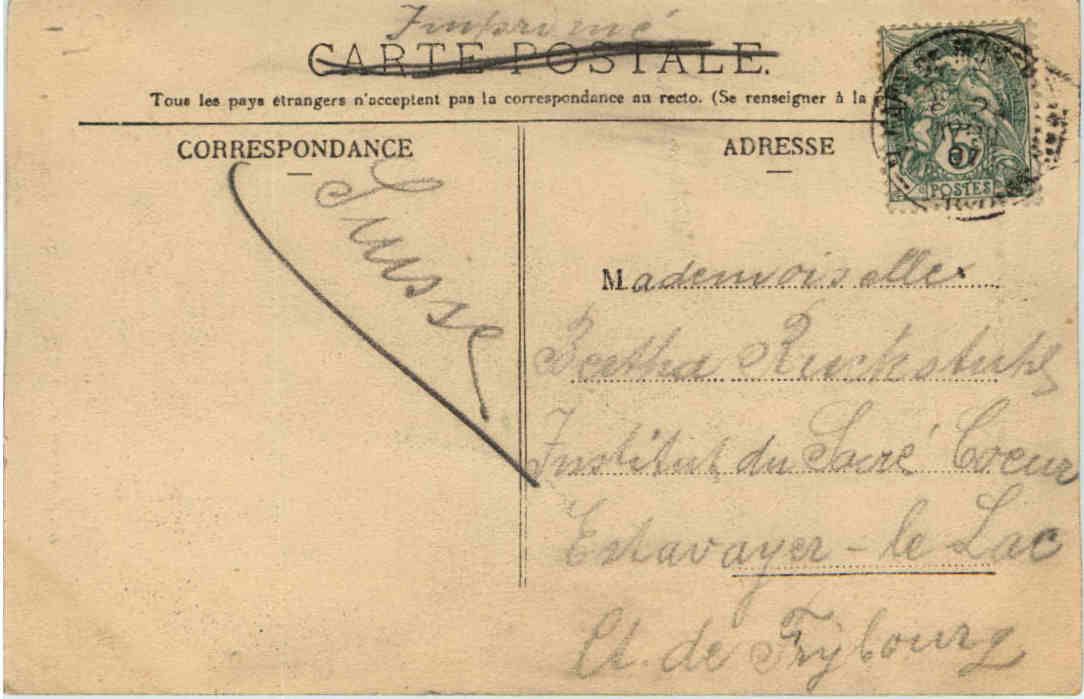 Imprimé
CARTE POSTALE.
Tous les pays étrangers n'acceptent pas la correspondance au recto. (Se renseigner à la
CORRESPONDANCE
ADRESSE
POSTES
07
Suisse
Mademoiselle
Bertha Ruckstuhl
Institut du Sacré Coeur
Estavayer-le Lac
Ct. de Frybourg